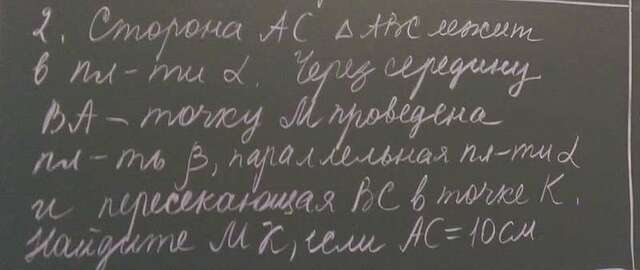 2. Сторона AC △ ABC лежит
в пл-ти α. Через середину
BA – точку M проведена
пл-ть β, параллельная пл-ти α
и пересекающая BC в точке K.
Найдите MK, если AC = 10 см